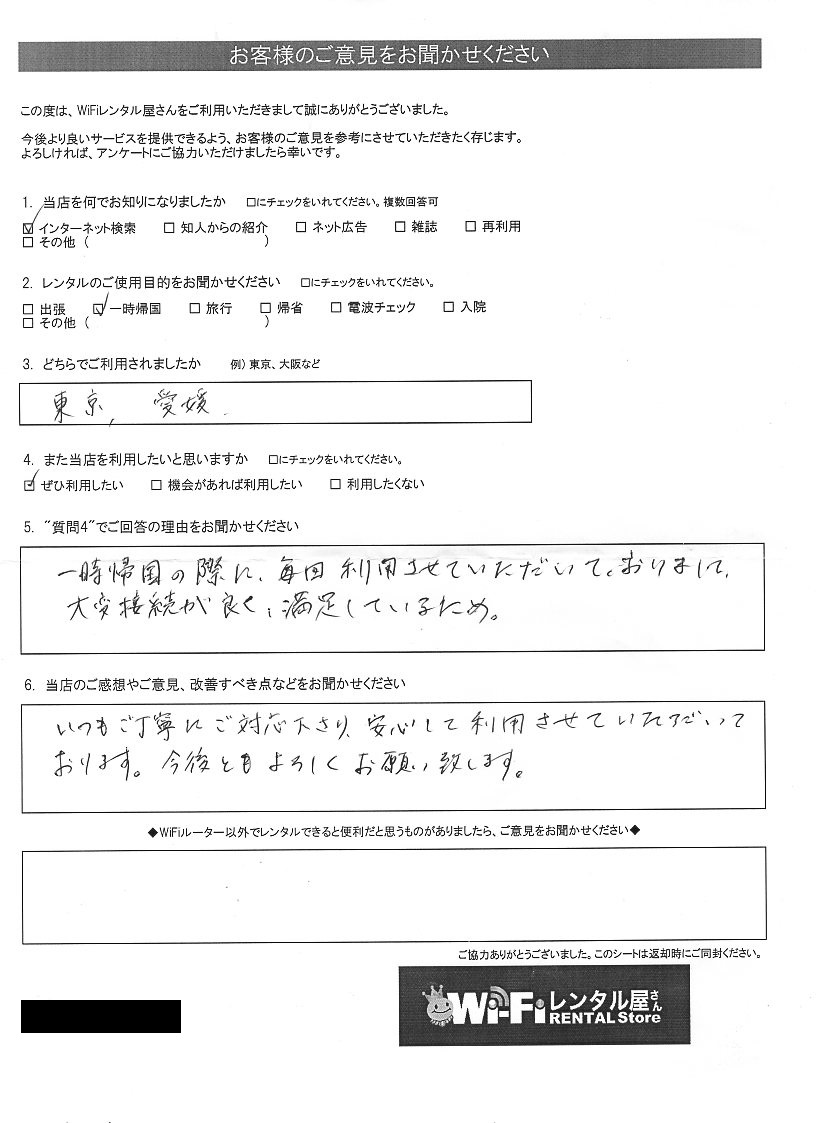 お客様のご意見をお聞かせください
この度は、WiFiレンタル屋さんをご利用いただきまして誠にありがとうございました。
今後より良いサービスを提供できるよう、お客様のご意見を参考にさせていただきたく存じます。
よろしければ、アンケートにご協力いただけましたら幸いです。
1. 当店を何でお知りになりましたか □にチェックをいれてください。複数回答可
☑ インターネット検索 □ 知人からの紹介 □ ネット広告 □ 雑誌 □ 再利用
□ その他 ( )
2. レンタルのご使用目的をお聞かせください □にチェックをいれてください。
□ 出張 ☑ 一時帰国 □ 旅行 □ 帰省 □ 電波チェック □ 入院
□ その他 ( )
3. どちらでご利用されましたか 例) 東京、大阪など
東京, 愛媛.
4. また当店を利用したいと思いますか □にチェックをいれてください。
☑ ぜひ利用したい □ 機会があれば利用したい □ 利用したくない
5. "質問4"でご回答の理由をお聞かせください
一時帰国の際に、毎回利用させていただいて、おりまして、
大変接続が良く、満足しているため。
6. 当店のご感想やご意見、改善すべき点などをお聞かせください
いつもご丁寧にご対応下さり、安心して利用させていただいって
おります。今後ともよろしくお願い致します。
◆WiFiルーター以外でレンタルできると便利だと思うものがありましたら、ご意見をお聞かせください◆
ご協力ありがとうございました。このシートは返却時にご同封ください。
Wi-Fiレンタル屋さん
RENTAL Store